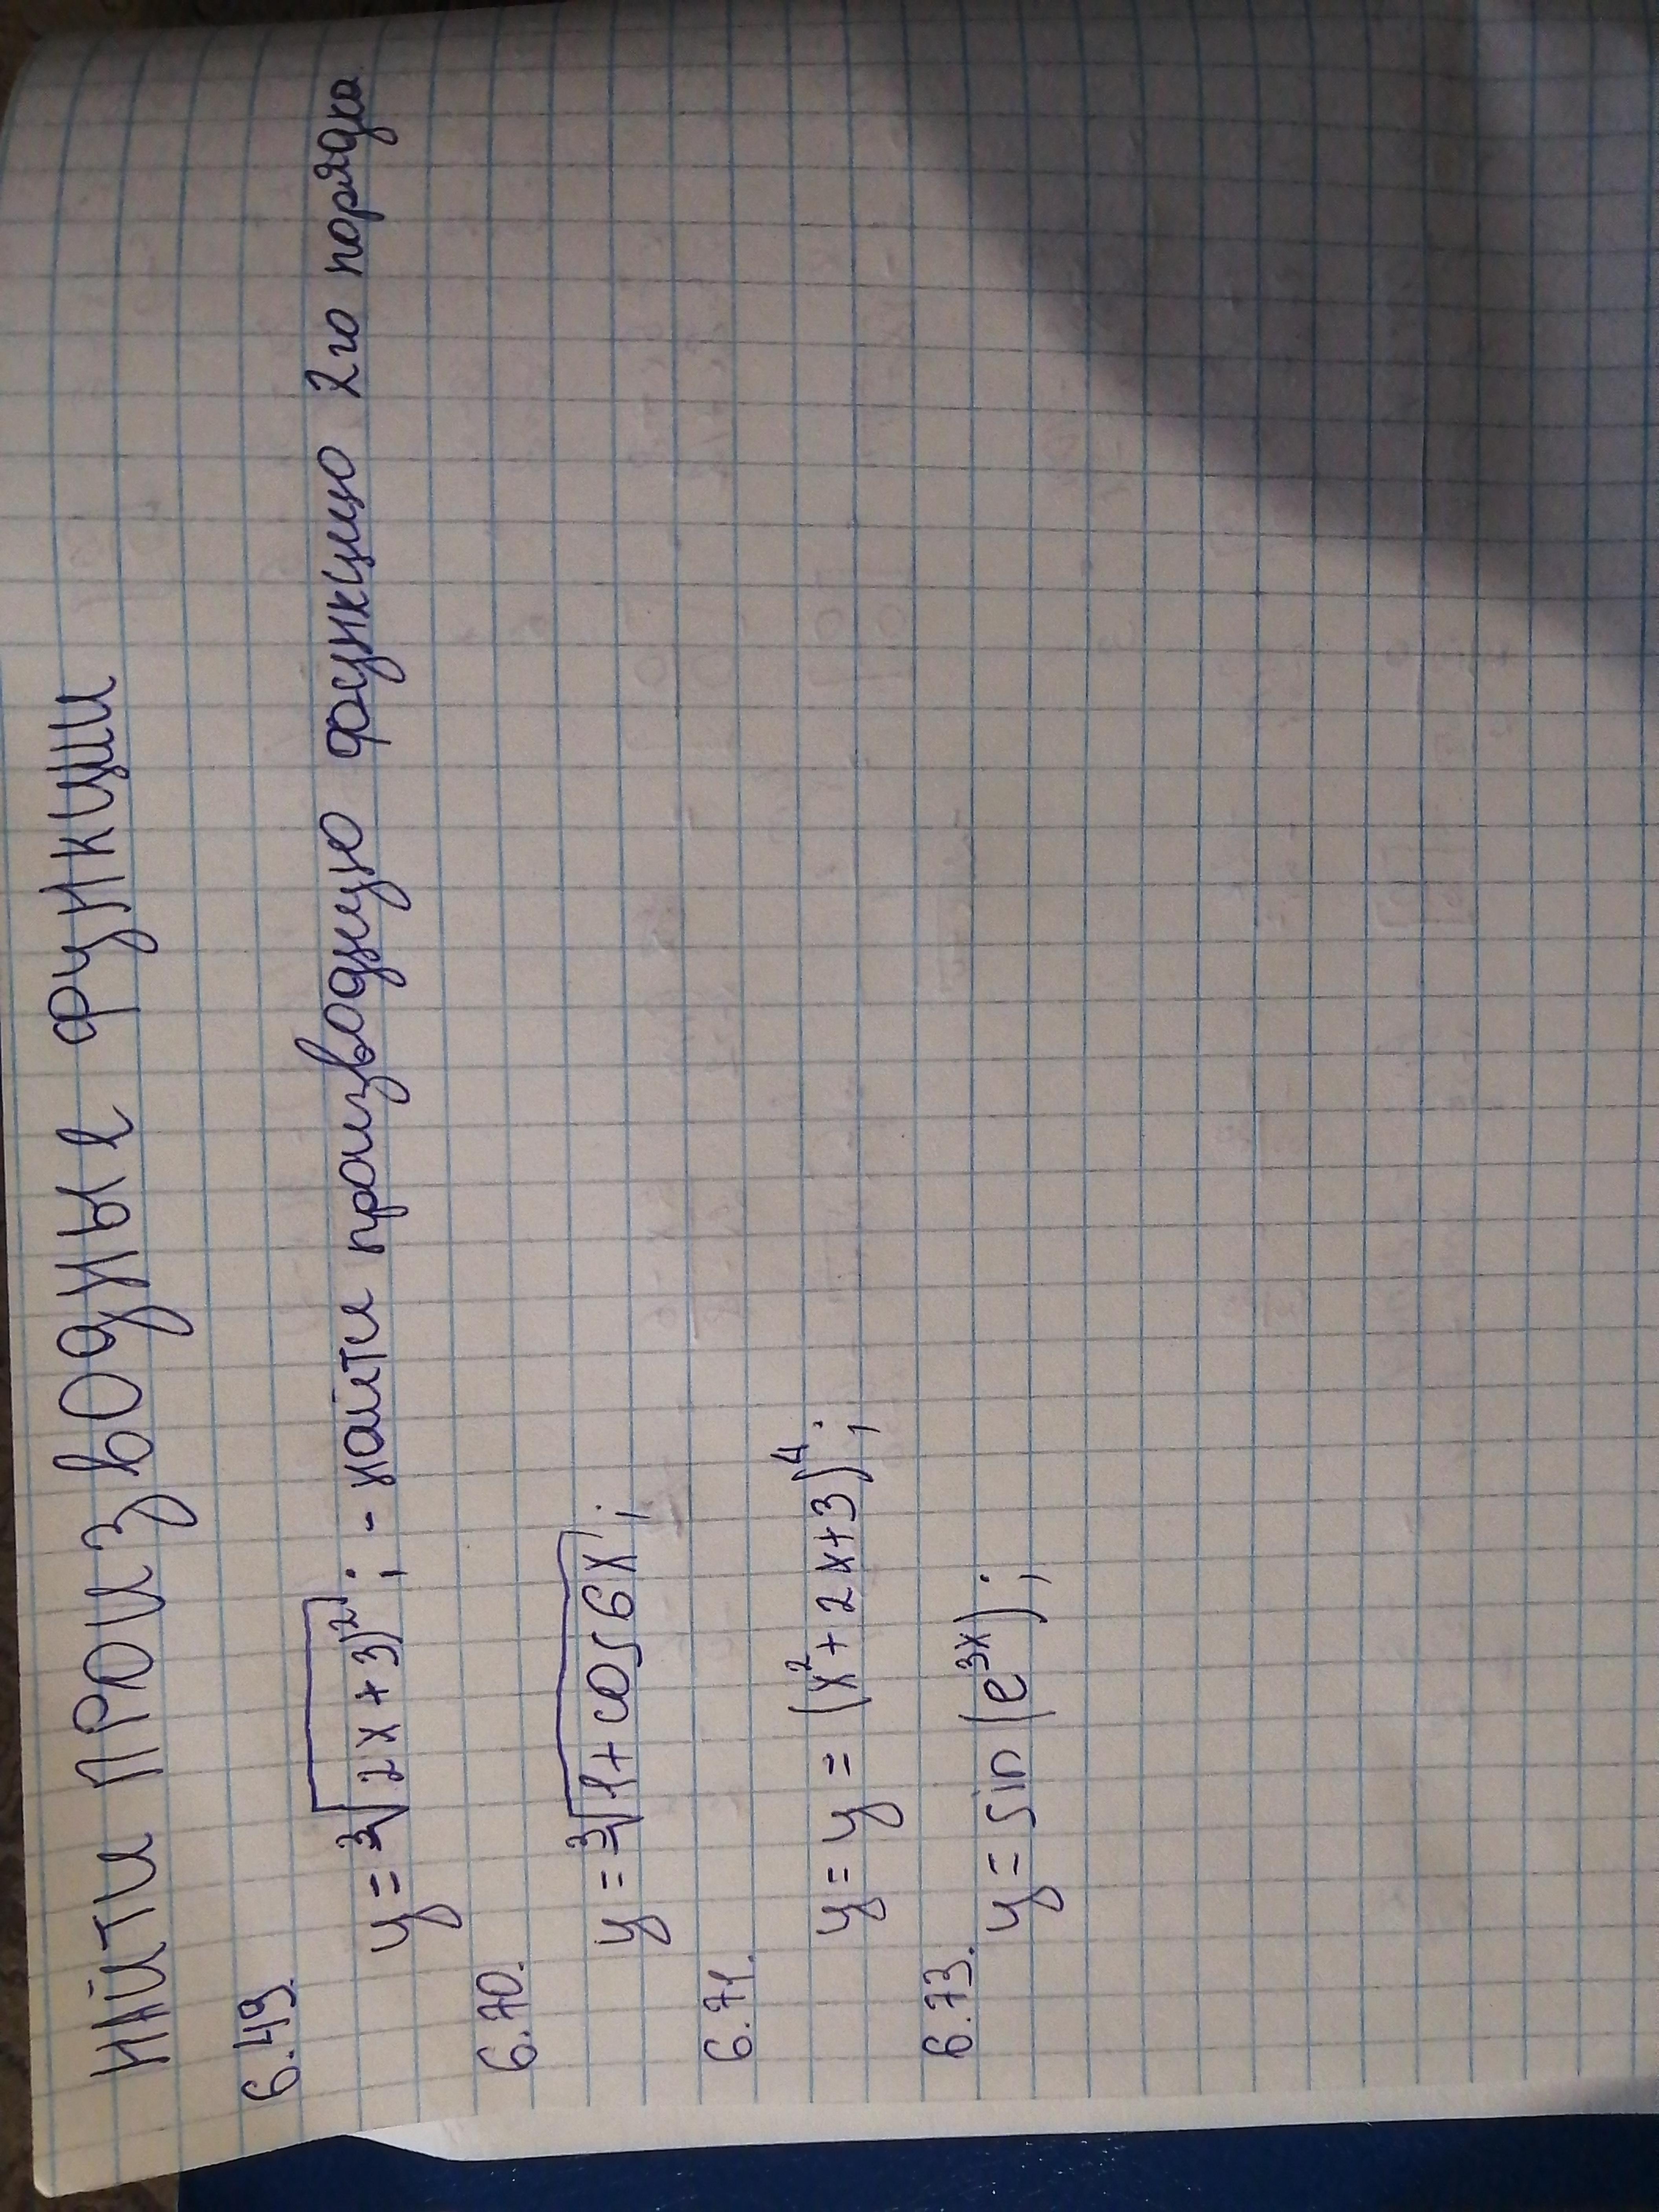 НАЙТИ ПРОИЗВОДНЫЕ ФУНКЦИИ
6.49.
y = ∛(2x+3)²; - найти производную функцию 2го порядка
6.70.
y = ∛(1+cos6x);
6.71.
y = y = (x²+2x+3)⁴;
6.73.
y = sin(e³ˣ);